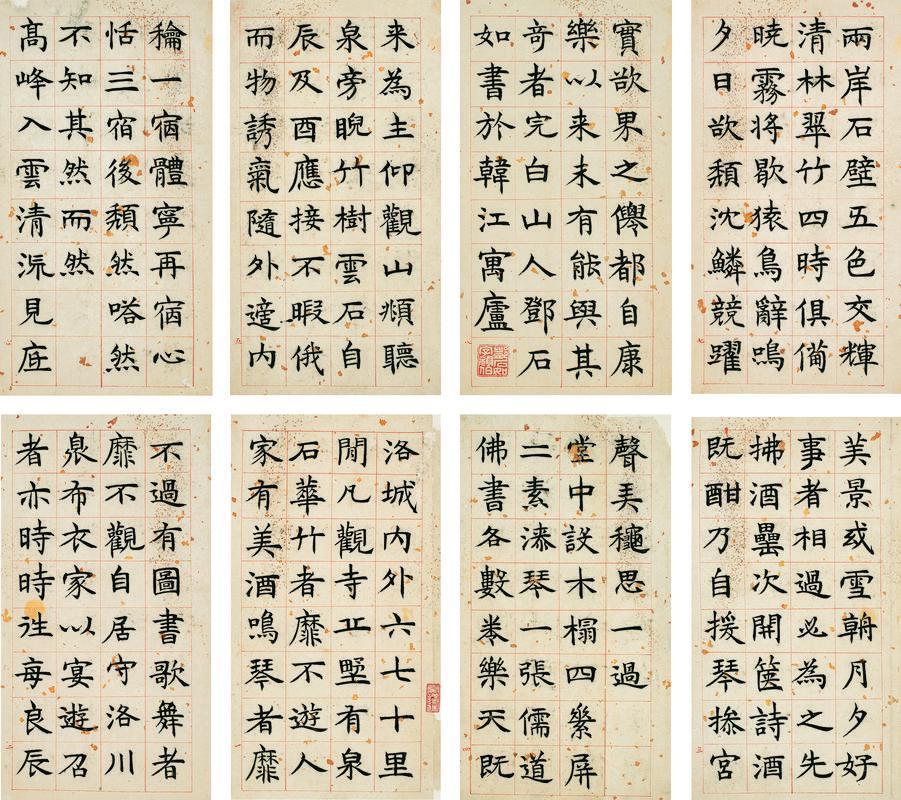 洛城内外六七十里
閒凡觀寺丘墅有泉
石華竹者靡不遊人
家有美酒鳴琴者靡
不過有圖書歌舞者
靡不觀自居守洛川
泉布衣家以宴遊召
者亦時時往每良辰
美景或雪朝月夕好
事者相過必為之先
拂酒罍次開篋詩酒
既酣乃自援琴操宮
聲弄穐思一過
堂中設木榻四縏屏
二素漆琴一張儒道
佛書各數卷樂天既
来為主仰觀山頫聽
泉旁睨竹樹雲石自
辰及酉應接不暇俄
而物誘氣隨外適内
龢一宿體寧再宿心
恬三宿後頹然嗒然
不知其然而然
高峰入雲清流見底
兩岸石壁五色交輝
清林翠竹四時俱備
曉霧将歇猿鳥辭鳴
夕日欲頹沈鱗競躍
實欲界之僊都自康
樂以来未有能與其
奇者完白山人鄧石
如書於韓江寓廬